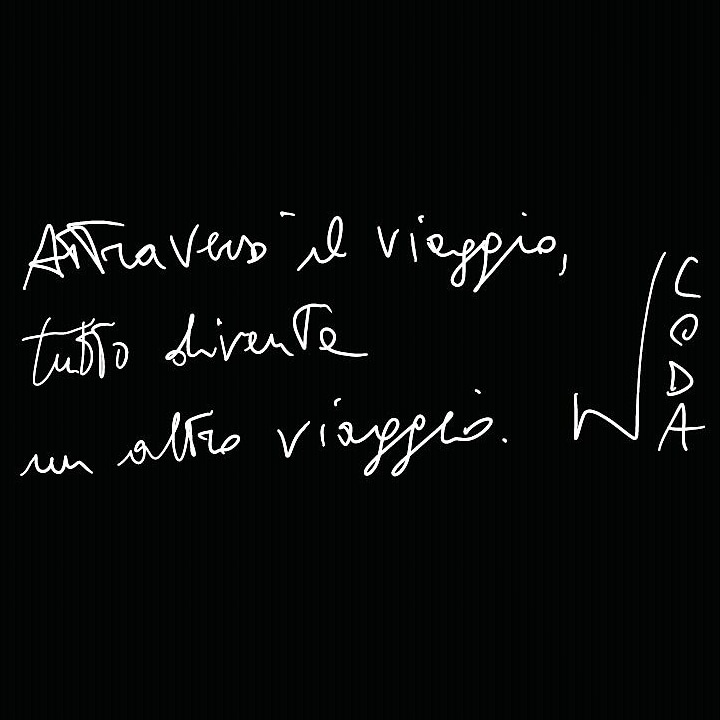 Attraverso il viaggio,
tutto divente
un altro viaggio.
CODA